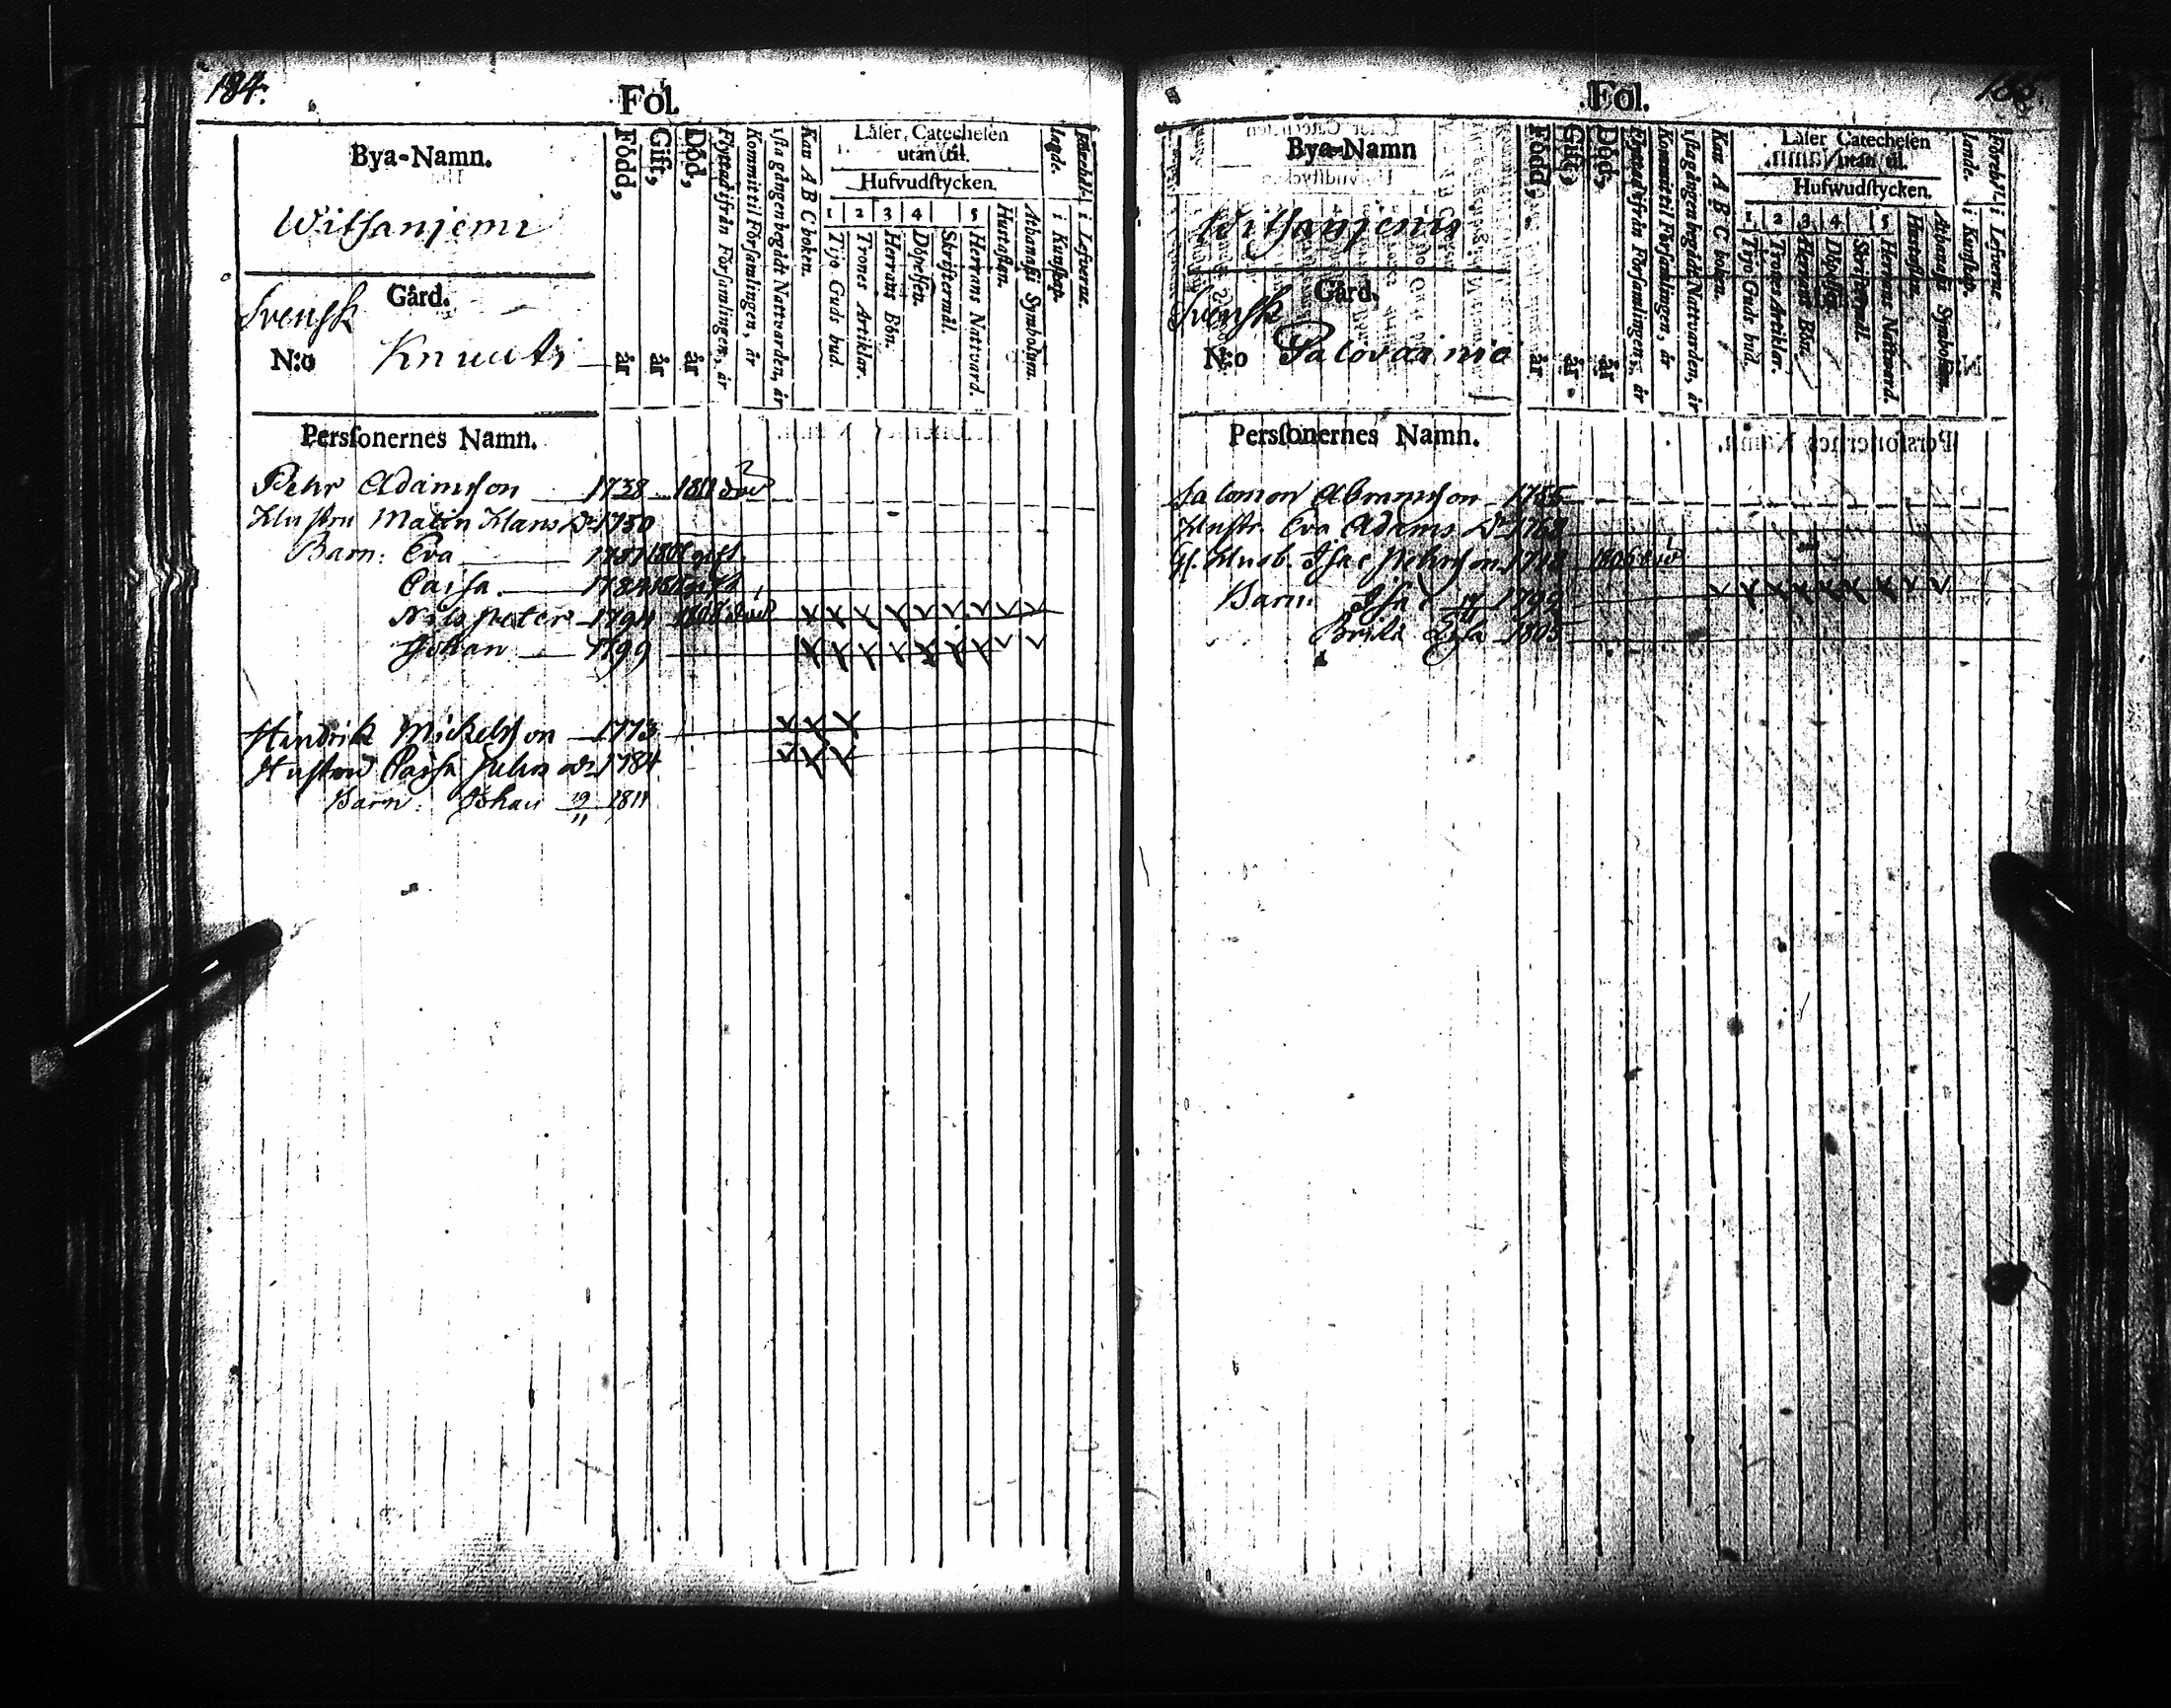 184.
Fol.
Bya-Namn.
Witsaniemi
Gård.
Svensk
N:o Knuuti
Född, år
Gift, år
Död, år
Flyttad ifrån Församlingen, år
Kommit til Församlingen, år
1sta gången begådt Nattvarden, år
Kan A B C boken.
Läser Catechesen
utan til.
Hufvudstycken.
1 2 3 4 5
Tijo Guds bud.
Trones Artiklar.
Herrans Bön.
Döpelsen.
Skriftermål.
Herrans Nattvard.
Hustaflan.
Athanasii Symbolum.
i Kunskap.
i Lefverne.
Personernes Namn.
Pehr Adamsson 1738 1811 död
Hustru Malin Klans Dr 1750
Barn: Eva 1781 gift
Caisa 1784 gift
Nils Peter 1794 1808 död
Johan 1799
Hindrik Mickelsson 1773
Hustru Caisa Pehrs dr 1784
Barn: Johan 19/11 1811
Fol.
Bya-Namn
Witsaniemi
Gård.
Svensk
N:o Palovainio
Född, år
Gift, år
Död, år
Flyttad ifrån Församlingen, år
Kommit til Församlingen, år
1sta gången begådt Nattvarden, år
Kan A B C boken.
Läser Catechesen
utan til.
Hufwudstycken.
1 2 3 4 5
Tijo Guds bud.
Trones Artiklar.
Herrans Bön.
Döpelsen.
Skriftermål.
Herrans Nattvard.
Hustaflan.
Athanasii Symbolum.
i Kunskap.
i Lefverne
Personernes Namn.
Salomon Abramsson 1755
Hustr. Eva Adams Dr 1768
Gl. Husb. Isac Pehrsson 1718 1806 död
Barn: Isac 1799
Brita Cajsa 1805